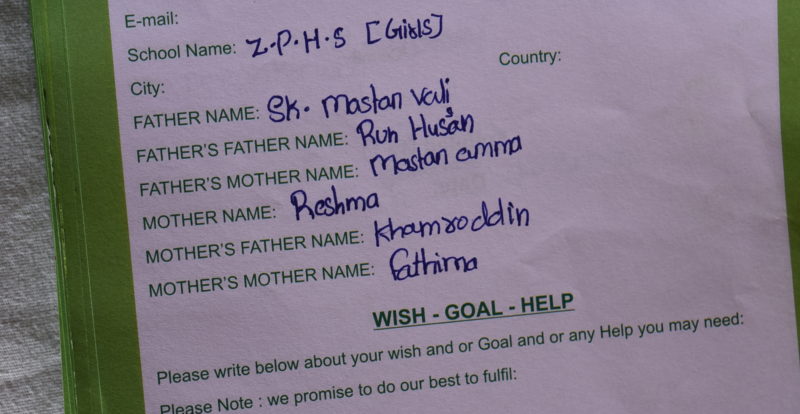 E-mail:
School Name: Z.P.H.S [Girls]
City: Country:
FATHER NAME: Sk. Mastan vali
FATHER'S FATHER NAME: Run Husan
FATHER'S MOTHER NAME: Mastan amma
MOTHER NAME: Reshma
MOTHER'S FATHER NAME: Khamroddin
MOTHER'S MOTHER NAME: Fathima
WISH - GOAL - HELP
Please write below about your wish and or Goal and or any Help you may need:
Please Note : we promise to do our best to fulfil: